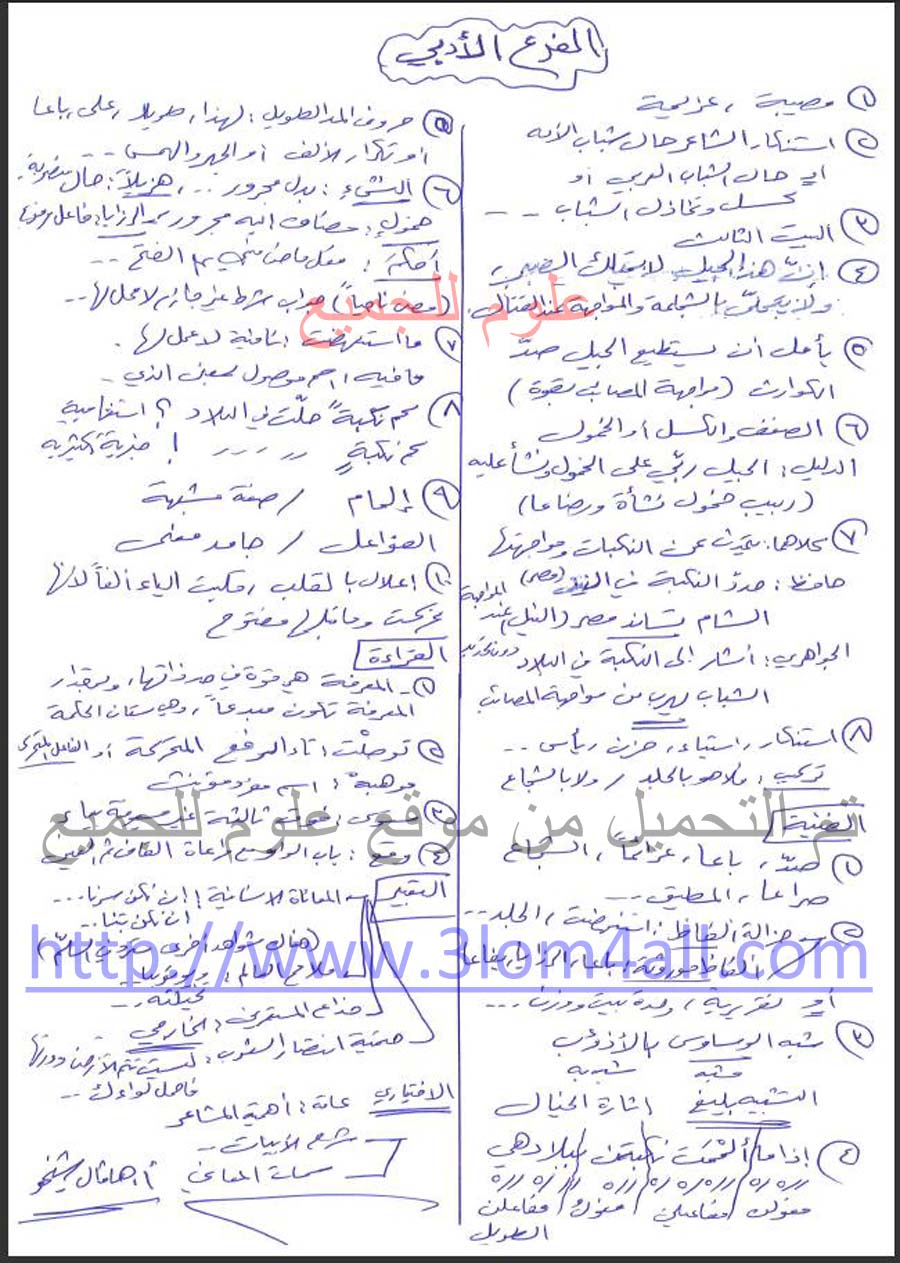 الفرع الأدبي
١) مصيبة ، عزيمة
٢) استنكار الشاعر حال شباب الأمة
أو حال الشباب العربي أو
كسل وتخاذل الشباب - -
٣) البيت الثالث
٤) إنّ هذا الجيل لا يمتلك
ولا يتحلّى بالشجاعة والمواجهة عند القتال
٥) يأمل أن يستطيع الجيل صدّ
الكوارث (مواجهة المصائب بقوة)
٦) الضعف والكسل أو الخمول
الدليل : الجيل ربّي على الخمول ونشأ عليه
(ربيب خمول نشأة ورضاعا)
٧) كلاهما : تحدث عن النكبات ومواجهتها
حافظ : حدد النكبة في (مصر)
الشام تساند مصر (النيل) عند المواجهة
الجواهري : أشار إلى النكبة في البلاد دون تحديد
الشباب يهرب من مواجهة المصائب
٨) استنكار ، استياء ، حزن ، يأس ..
تركيب : فلا هو بالجلد / ولا بالشجاع
الفنية
١) صدّ ، باعا ، عزائماً ، الشجاع
صراعا ، المطيق ...
٢) جزالة الألفاظ : استنهضت ، الجلد ..
ألفاظ موروثة : باعا ، الرزايا ، يفاعا
أو تقريرية ، وحدة بيت ووزن ...
٣) شبه الوساوس بالأذؤب
مشبه مشبه به
التشبيه بليغ إثارة الخيال
٤) إذا ما ألحّت نكبة من بلادهي
فعولن مفاعيلن فعول مفاعلن
الطويل
٥) حروف المد الطويل : لهذا ، طويلا ، على ، باعا
أو تكرار الألف أو الجهر والهمس ...
٦) النشء : بدل مجرور .. ، هزيلاً : حال منصوبة
خمول : مضاف إليه مجرور الرزايا : فاعل مرفوع
أحكم : فعل ماض مبني على الفتح ..
جواب شرط غير جازم لا محل لها ..
٧) ما استنهضت : نافية لا عمل لها .
ما فيه : اسم موصول بمعنى الذي ..
٨) كم نكبةً حلّت في البلاد ؟ استفهامية
كم نكبةٍ - - - - ! خبرية تكثيرية
٩) إلمام / صفة مشبهة
الفواعل / جامد معنى
١٠) إعلال بالقلب ، قلبت الياء ألفاً لأنها
تحركت وما قبلها مفتوح
القراءة
١) - المعرفة هي قوة في حد ذاتها ، وبمقدار
المعرفة تكون مبدعاً ، وهي بستان الحكمة
٢) توصلْت : تاء الرفع المتحركة أو الفاعل المتحركة
موهبة : اسم مفرد مؤنث
٤) وقع : باب الواو مع مراعاة القاف ثم العين
التعبير
المعاناة الإنسانية : إن نكن سرنا ...
إن نكن بتنا ..
(هناك شواهد أخرى
ملامح العالم :
خداع المستعمرين : الخارجي
حتمية انتصار الشعوب : ليست تتم للأرض دورتها
الاختياري
عامة : أهمية المشاعر
شرح الأبيات ..
سمات المعاني
علوم للجميع
تم التحميل من موقع علوم للجميع
http://www.3lom4all.com